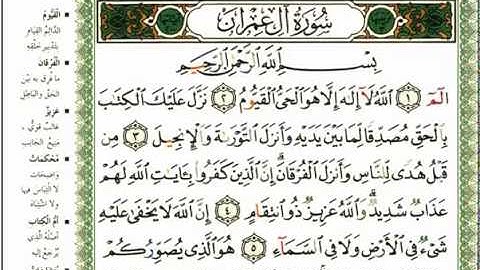 سُورَةُ آلِ عِمْرَان
بِسْمِ اللَّهِ الرَّحْمَٰنِ الرَّحِيمِ
الٓمٓ ١ اللَّهُ لَآ إِلَٰهَ إِلَّا هُوَ الْحَيُّ الْقَيُّومُ ٢ نَزَّلَ عَلَيْكَ الْكِتَابَ
بِالْحَقِّ مُصَدِّقًا لِمَا بَيْنَ يَدَيْهِ وَأَنزَلَ التَّوْرَىٰةَ وَالْإِنجِيلَ ٣ مِن
قَبْلُ هُدًى لِّلنَّاسِ وَأَنزَلَ الْفُرْقَانَ ۗ إِنَّ الَّذِينَ كَفَرُوا بِـَٔايَاتِ اللَّهِ لَهُمْ
عَذَابٌ شَدِيدٌ ۗ وَاللَّهُ عَزِيزٌ ذُو انتِقَامٍ ٤ إِنَّ اللَّهَ لَا يَخْفَىٰ عَلَيْهِ
شَىْءٌ فِي الْأَرْضِ وَلَا فِي السَّمَآءِ ٥ هُوَ الَّذِي يُصَوِّرُكُمْ
الْقَيُّومُ
الدَّائِمُ الْقِيَامِ
بِتَدْبِيرِ خَلْقِهِ
الْفُرْقَانَ
مَا فُرِقَ بِهِ بَيْنَ
الْحَقِّ وَالْبَاطِلِ
عَزِيزٌ
غَالِبٌ قَوِيٌّ ،
مَنِيعُ الْجَانِبِ
مُحْكَمَاتٌ
وَاضِحَاتٌ
لَا الْتِبَاسَ فِيهَا
وَلَا اشْتِبَاهَ
أُمُّ الْكِتَابِ
أَصْلُهُ الَّذِي
يُرْجَعُ إِلَيْهِ